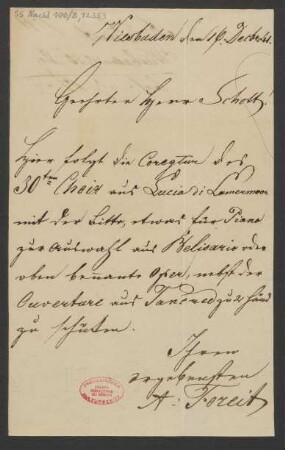 55 Nachl 100/B,
Wiesbaden den 16 Decbr 41.
Geehrter Herr Schott!
Hier folgt die Corectur des
30ten Choix aus Lucia di Lamermoor
mit der Bitte, etwas für Piano
zur Auswahl aus Belisario oder
oben benante Oper, nebst der
Ouverture aus Tancred zu 2 Händ
zu schicken.
Ihren
ergebensten
A: